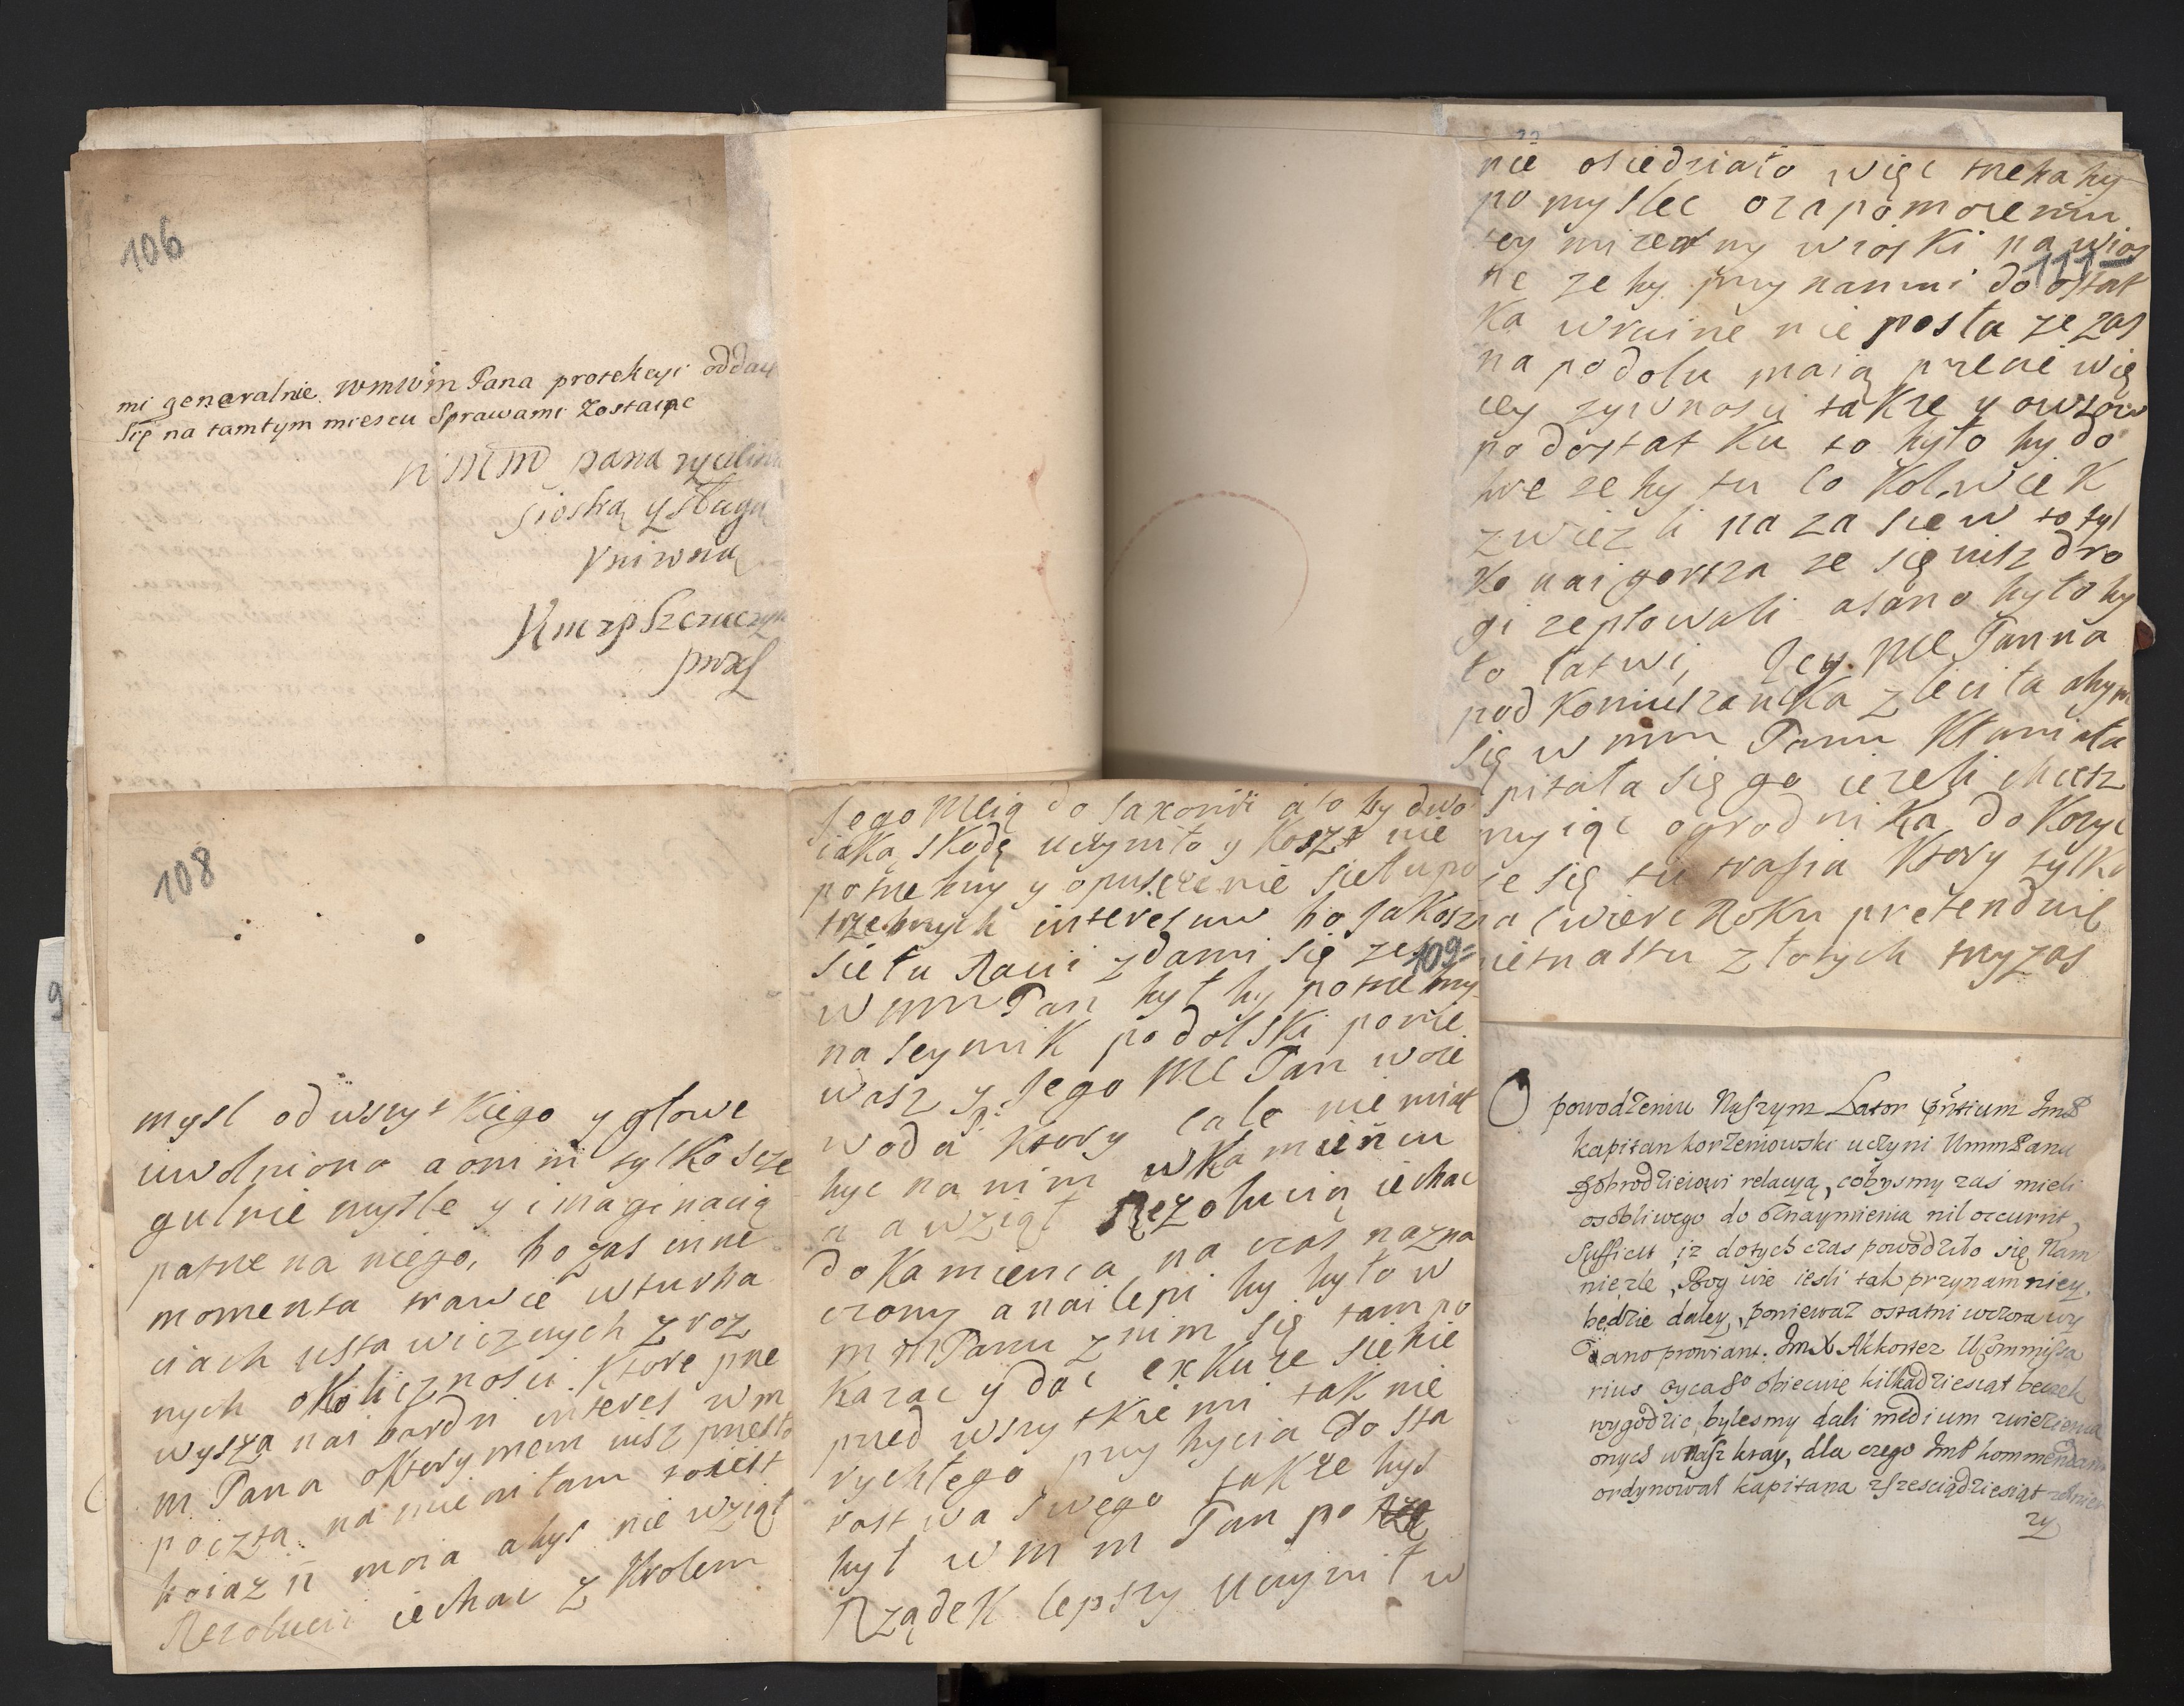 106
mi generalnie WmWm Pana protekcyi oddaię
się na tamtym miescu Sprawami Zostaiąc
pana
siostrą y sługą
108
mysl od wszytkiego y głowe
uwolniono a om ni tylko scze
gulnie mysle y imaginacią
patrze na niego, bo zas inne
momenta trawie w turba
ciach ustawicznych z roz
nych okolicznosci ktore prze
wysza nai bardzi interes w m
m Pana o ktorymem iusz przeszłą
pocztą na mieniłam to iest
boiazń moia abys nie wziął
Rezolucii iechac z Krolem
Jego Mcią do Saxonii a to by dwo
iaką skodę uczyniło y koszt nie
potrzebny y opusczenie sieła po
trzebnych interesuw bo Jakosz
sieła Racii zdami się ze
109
w mm Pan był by potrzebny
na seymik podolski ponie
wasz y Jego MC Pan woie
woda ktory cale nie miał
byc na nim w Kamieńcu
a wziął Rezolucią iechac
do Kamienca na czas nazna
czony a nailepi by było w
m m Panu z nim się tam po
kazac y dac exkuze siebie
przed wszytkiemi tak nie
rychłego przybycia do sta
rostwa swego takze bys
był w m m Pan po
Rządek lepszy uczynił w
nie osiedziało więc trzeba by
pomyslec o zapomozeniu
tey mizerny wioski na wios
111
ne ze by przynamni do ostat
ka w ruine nie posła ze zas
na podolu maią przecie wię
cey zywnosci takze y owsow
po dostatku to było by do
bre ze by tu co kolwiek
zwiezli na zasiew to tyl
ko nai gorsza ze się iusz dro
gi zepsowali a sano było by
to łatwi, Jey MC Panna
pod Koniuszanka zleciła abym
się w mm Panu kłaniała
pitała się go iezeli chcesz
przyiąc ogrodnika do Korzyc
ze się tu trafia ktory tylko
na cwierc Roku pretenduie
pietnastu złotych trzy zas
O powodzeniu Naszym Lator ImP
kapitan korzeniowski uczyni UmmPanu
Dobrodzieiowi relacyą, cobysmy zas mieli
osobliwego do oznaymienia nil occurrit,
Sufficit iz dotychczas powodziło się Nam
niezle, Bog wie iesli tak przynamniey
będzie daley, poniewaz ostatni wczora wy
dano prowiant. ImX Akkorter
rius oycas obiecuie kilkadziesiąt beczek
wygodzic, bylesmy dali medium zwiezienia
onych w nasz kray, dla czego ImP kommendant
ordynował kapitana z szesciądziesiąt zołnier
zy